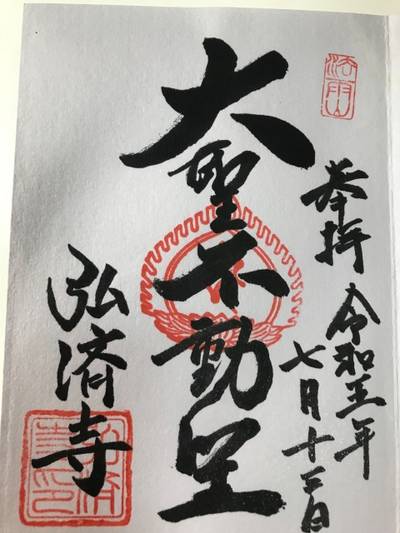 奉拝
令和五年
七月十三日
大聖不動
弘済寺